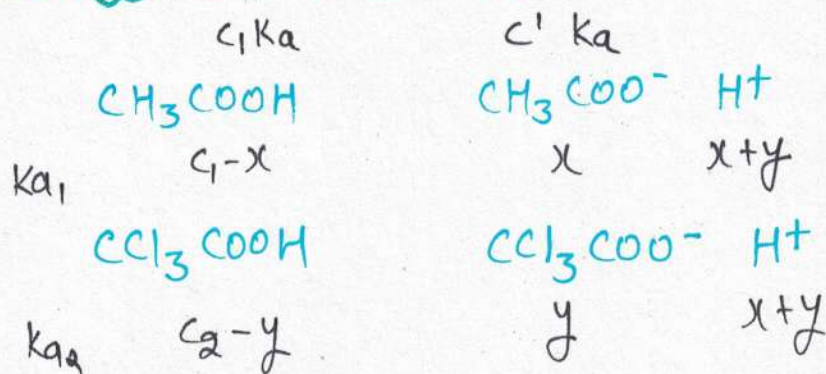 C₁Ka C' Ka
CH₃COOH CH₃COO⁻ H⁺
C₁-x x x+y
Ka₁
CCl₃COOH CCl₃COO⁻ H⁺
Ka₂ C₂-y y x+y